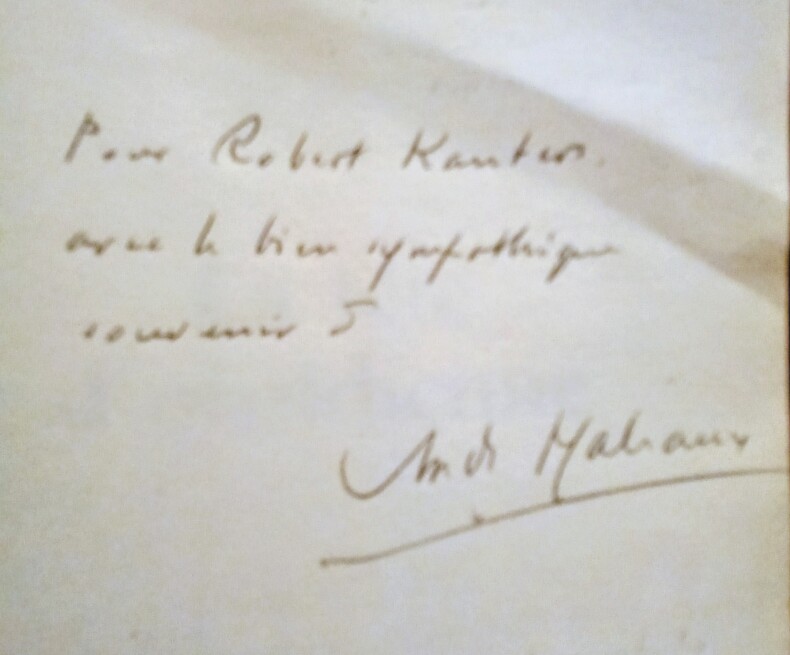 Pour Robert Kanters.
avec le bien sympathique
souvenir
André Malraux